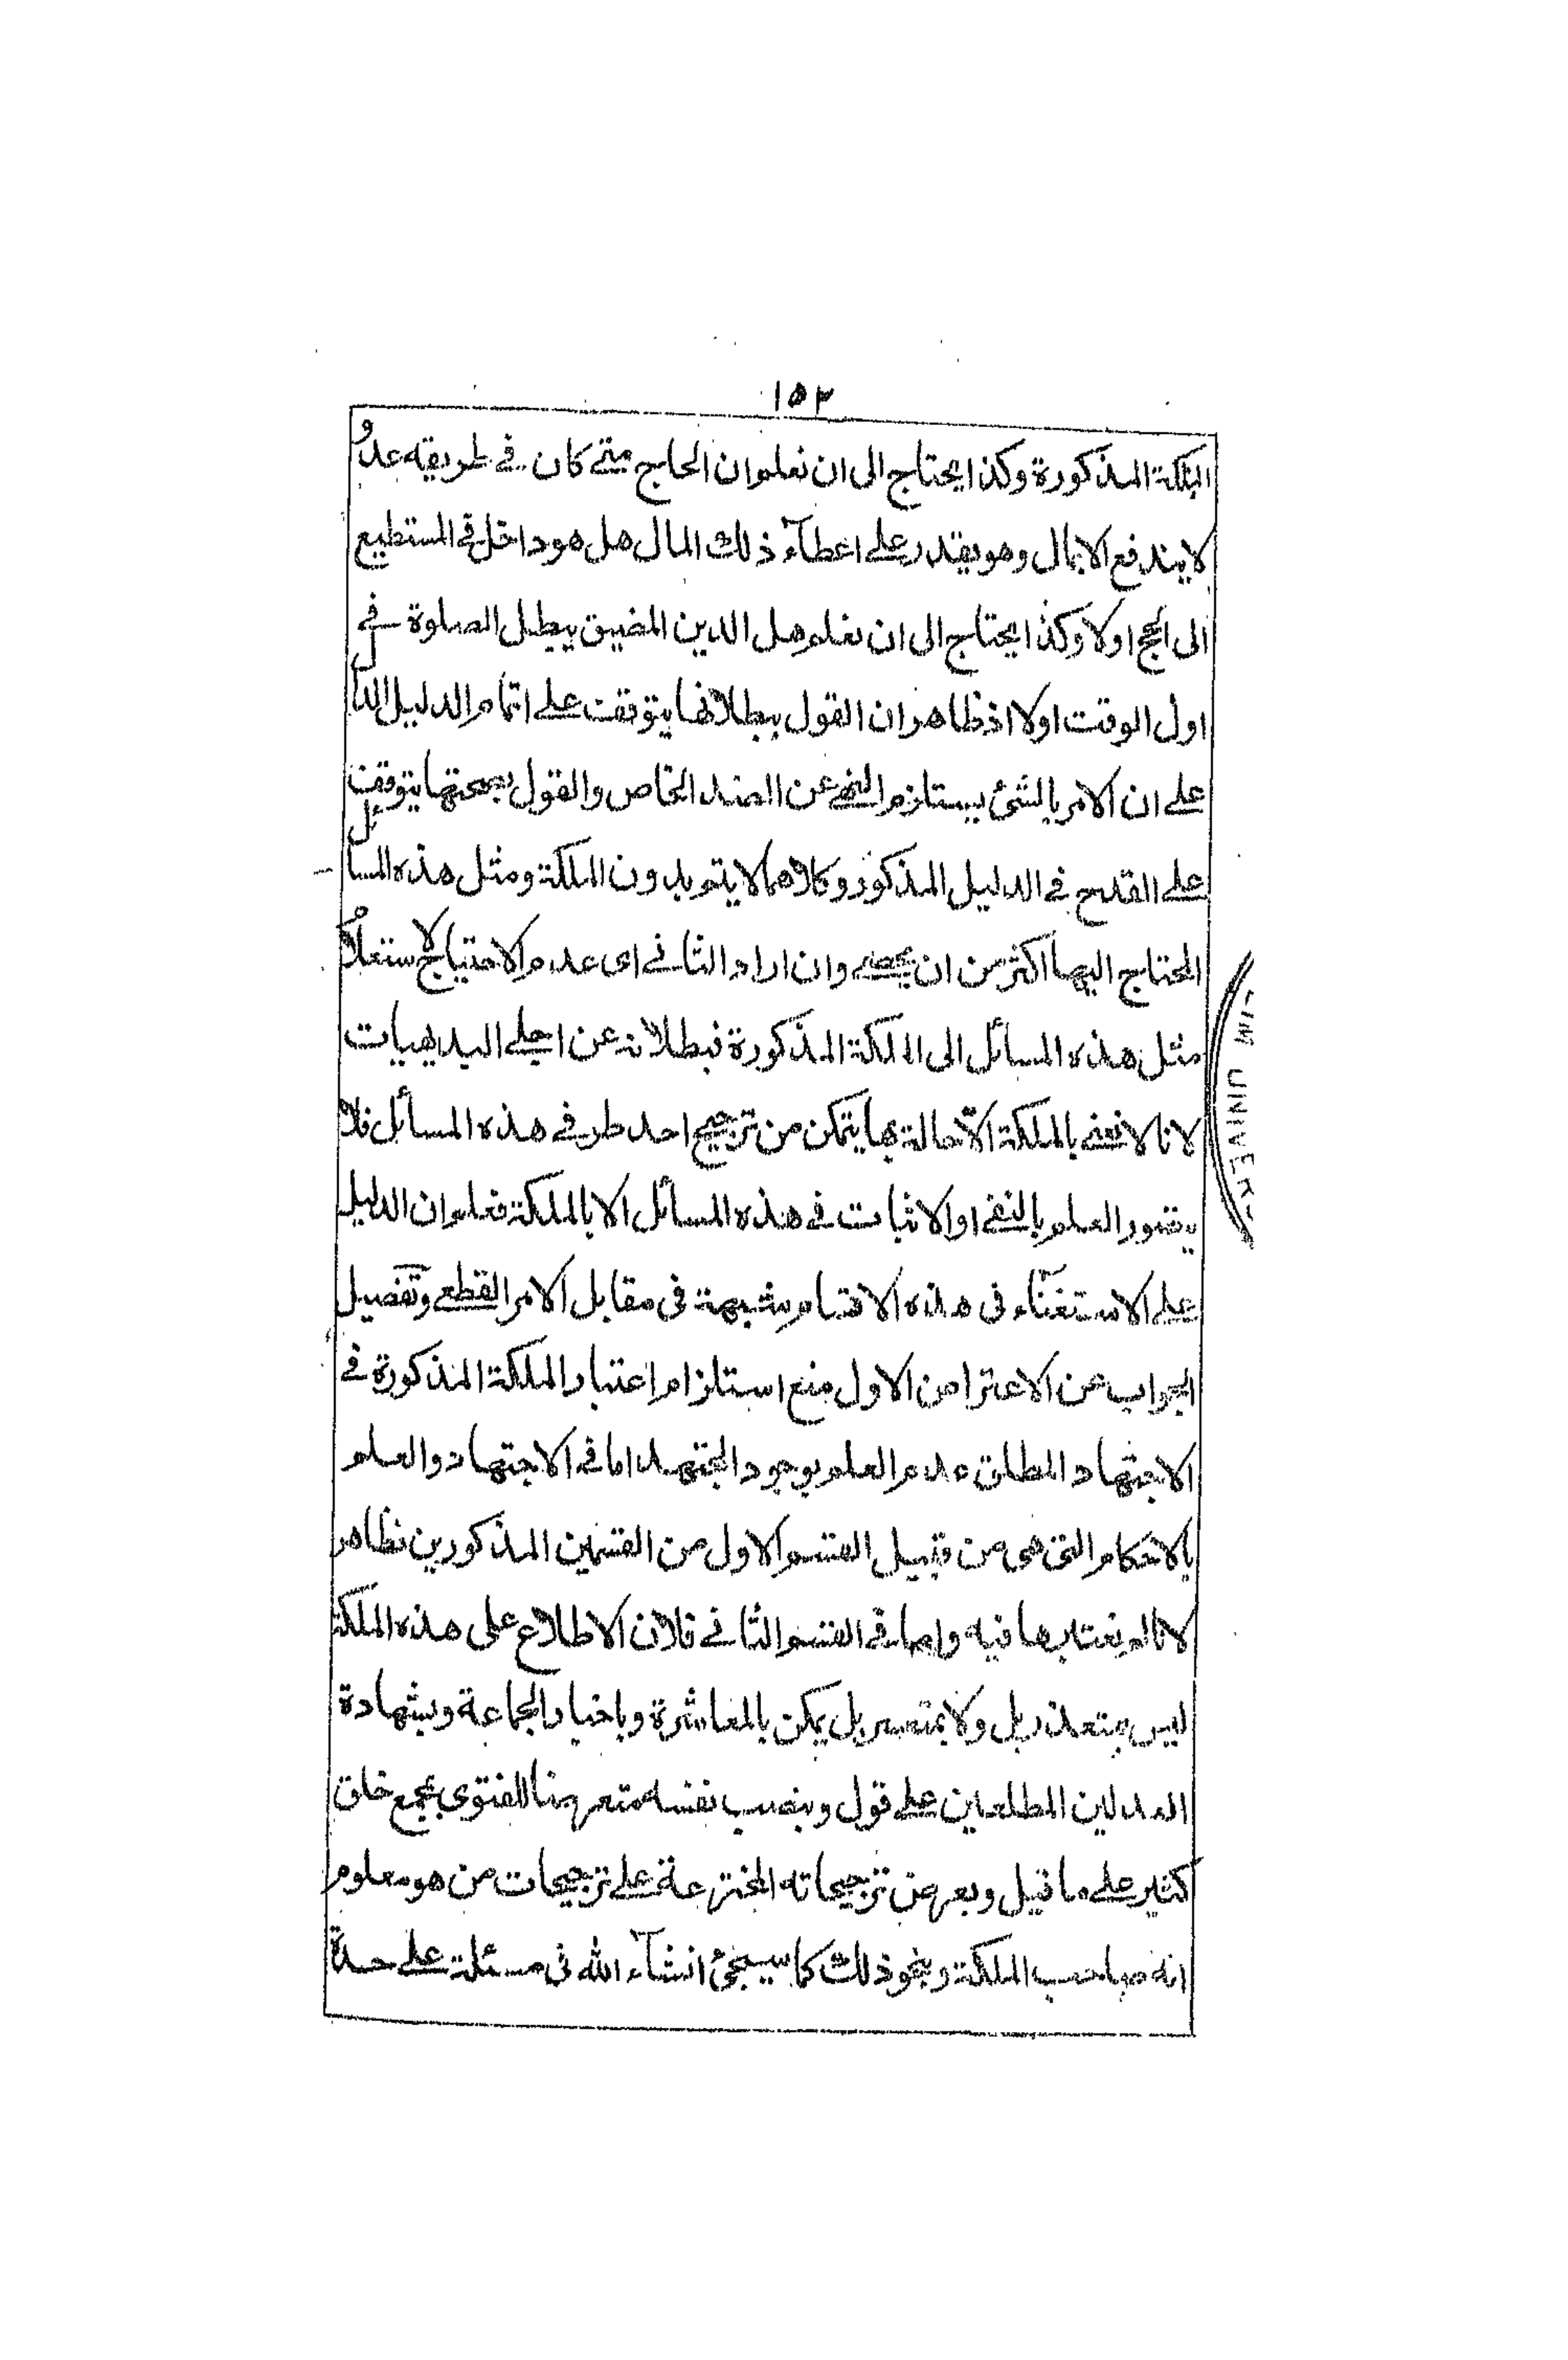 ١٥٢
الملكة المذكورة وكذا يحتاج الى ان نعلم ان الحاج متى كان في طريقه عدو
لا يندفع الا بمال وهو يقدر على اعطآء ذلك المال هل هو داخل في المستطيع
الى الحج اولا وكذا يحتاج الى ان نعلم هل الدين المضيق يبطل الصلوة في
اول الوقت اولا اذ ظاهر ان القول ببطلانها يتوقف على اتمام الدليل الدال
على ان الامر بالشئ يستلزم النهى عن الضد الخاص والقول بصحتها يتوقف
على القدح في الدليل المذكور وكلاهما لا يتم بدون الملكة ومثل هذه المسائل
المحتاج اليها اكثر من ان يحصى وان اراد الثاني اى عدم الاحتياج لاستعلام
مثل هذه المسائل الى الملكة المذكورة فبطلانه عن اجلى البديهيات
لانا لا نعنى بالملكة الّا حالة بها يتمكن من ترجيح احد طرفي هذه المسائل فلا
يتصور العلم بالنفى او الاثبات في هذه المسائل الا بالملكة فعلم ان الدليل
على الاستغنآء فى هذه الاقسام شبهة فى مقابل الامر القطعى وتفصيل
الجواب عن الاعتراض الاول منع استلزام اعتبار الملكة المذكورة في
الاجتهاد المطلق عدم العلم بوجود المجتهد اما في الاجتهاد والعلم
بالاحكام التى هى من قبيل القسم الاول من القسمين المذكورين فظاهر
لانا لم نعتبرها فيه واما في القسم الثاني فلان الاطلاع على هذه الملكة
ليس بمتعذر بل ولا بمتعسر بل يمكن بالمعاشرة وباخبار الجماعة وبشهادة
العدلين المطلعين على قول وبنصب نفسه متعرضا للفتوى بمجمع خلق
كثير على ما قيل وبعرض ترجيحاته المخترعة على ترجيحات من هو معلوم
انه صاحب الملكة ونحو ذلك كما سيجئ انشآء الله فى مسئلة على حدة
IM UNIVER